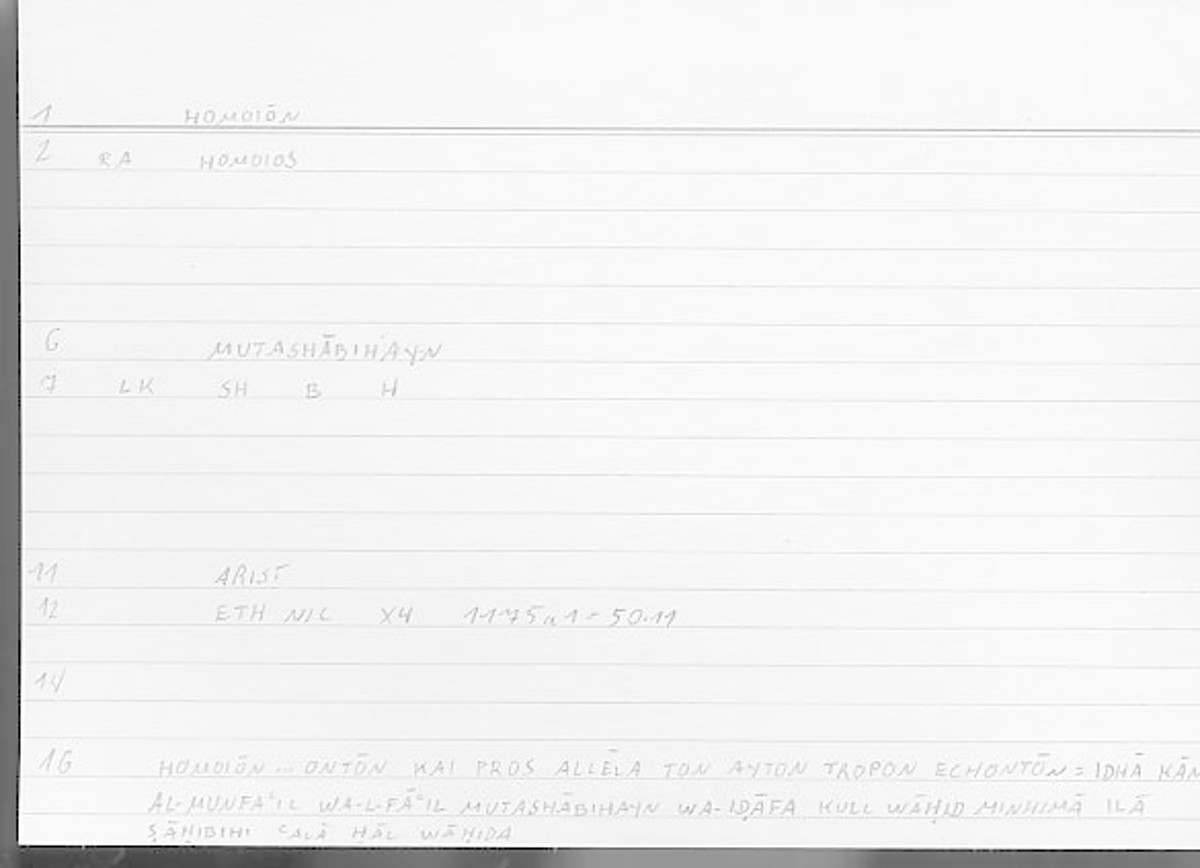 1 HOMOIŌN
2 RA HOMOIOS
6 MUTASHĀBIHAYN
7 LK SH B H
11 ARIST
12 ETH NIC X4 1175a1 = 50.11
14
16 HOMOIŌN ... ONTŌN KAI PROS ALLĒLA TON AYTON TROPON ECHONTŌN = IDHĀ KĀN
AL-MUNFAʿIL WA-L-FĀʿIL MUTASHĀBIHAYN WA-IḌĀFA KULL WĀḤID MINHIMĀ ILĀ
ṢĀḤIBIHI ʿALĀ ḤĀL WĀḤIDA